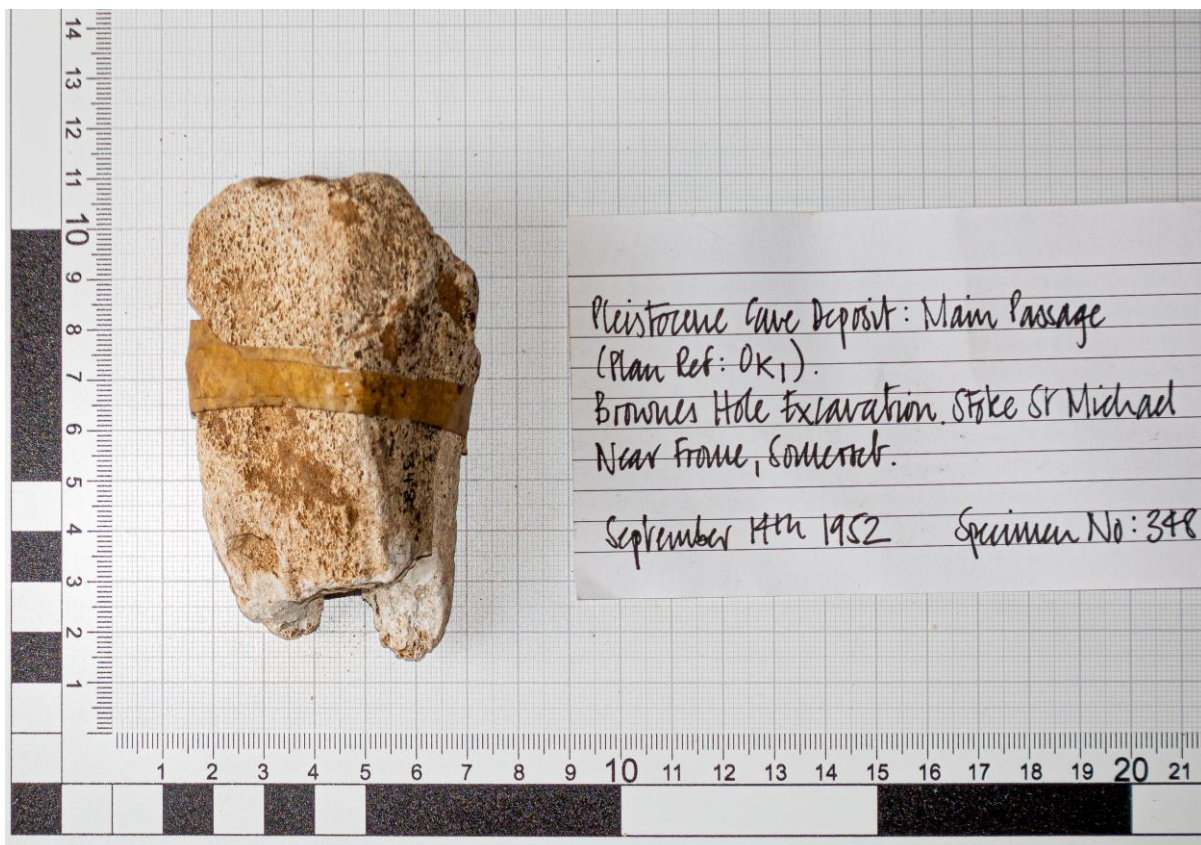 14
13
12
11
10
9
8
7
6
5
4
3
2
1
348
Pleistocene Cave Deposit: Main Passage
(Plan Ref: OK1).
Brownes Hole Excavation. Stoke St Michael
Near Frome, Somerset.
September 14th 1952 Specimen No: 348
1 2 3 4 5 6 7 8 9 10 11 12 13 14 15 16 17 18 19 20 21